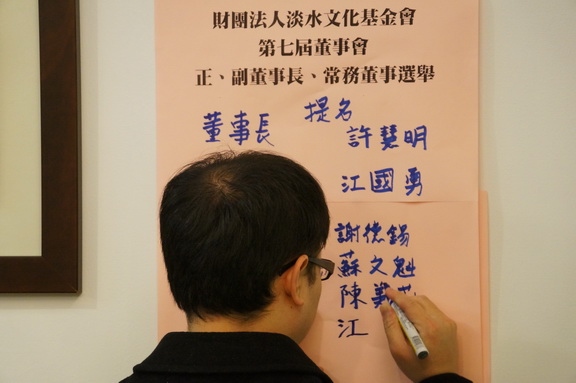 財團法人淡水文化基金會
第七屆董事會
正、副董事長、常務董事選舉
董事長 提名
許慧明
江國勇
謝德錫
蘇文魁
陳
江